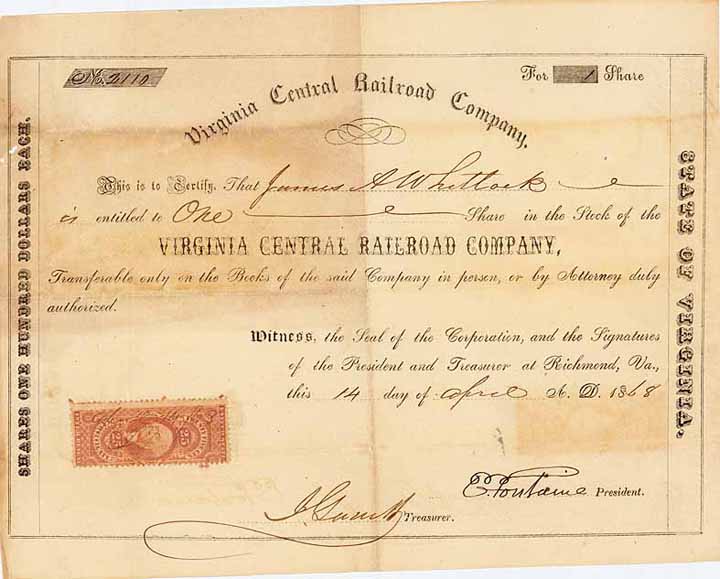 No. 2110
For 1 Share
Virginia Central Railroad Company.
SHARES ONE HUNDRED DOLLARS EACH.
This is to Certify, That James A Whitlock
is entitled to One Share in the Stock of the
VIRGINIA CENTRAL RAILROAD COMPANY,
Transferable only on the Books of the said Company in person, or by Attorney duly
authorized.
Witness, the Seal of the Corporation, and the Signatures
of the President and Treasurer at Richmond, Va.,
this 14 day of April A. D. 1868
STATE OF VIRGINIA.
25 25
E. Fontaine President.
Treasurer.